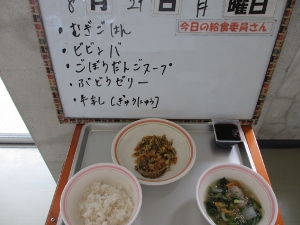 8月29日 月曜日
今日の給食委員さん
・むぎごはん
・ビビンバ
・ごぼうだんごスープ
・ぶどうゼリー
・牛乳[ぎゅうにゅう]